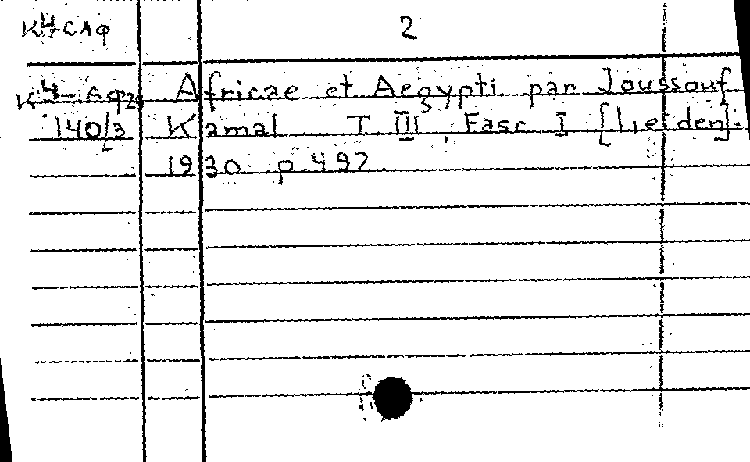 2
Africae et Aegypti par Joussouf
140/3 Kamal T III, Fasc I [Leiden].
1930 p 497